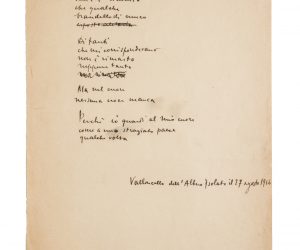 che qualche
brandello di muro
esposto all'aria
Di tanti
che mi corrispondevano
non è rimasto
neppure tanto
Ma nel cuore
nessuna croce manca
Perché io guardi al mio cuore
come a uno straziato paese
qualche volta
Valloncello dell'Albero Isolato il 27 agosto 1916